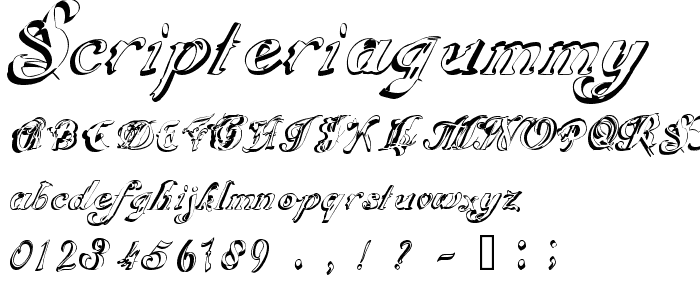 Scripteriagummy
ABCDEFGHIJKLMNOPQRS
abcdefghijklmnopqrstuvwxyz
0123456789 . , ! ? - □ : ;